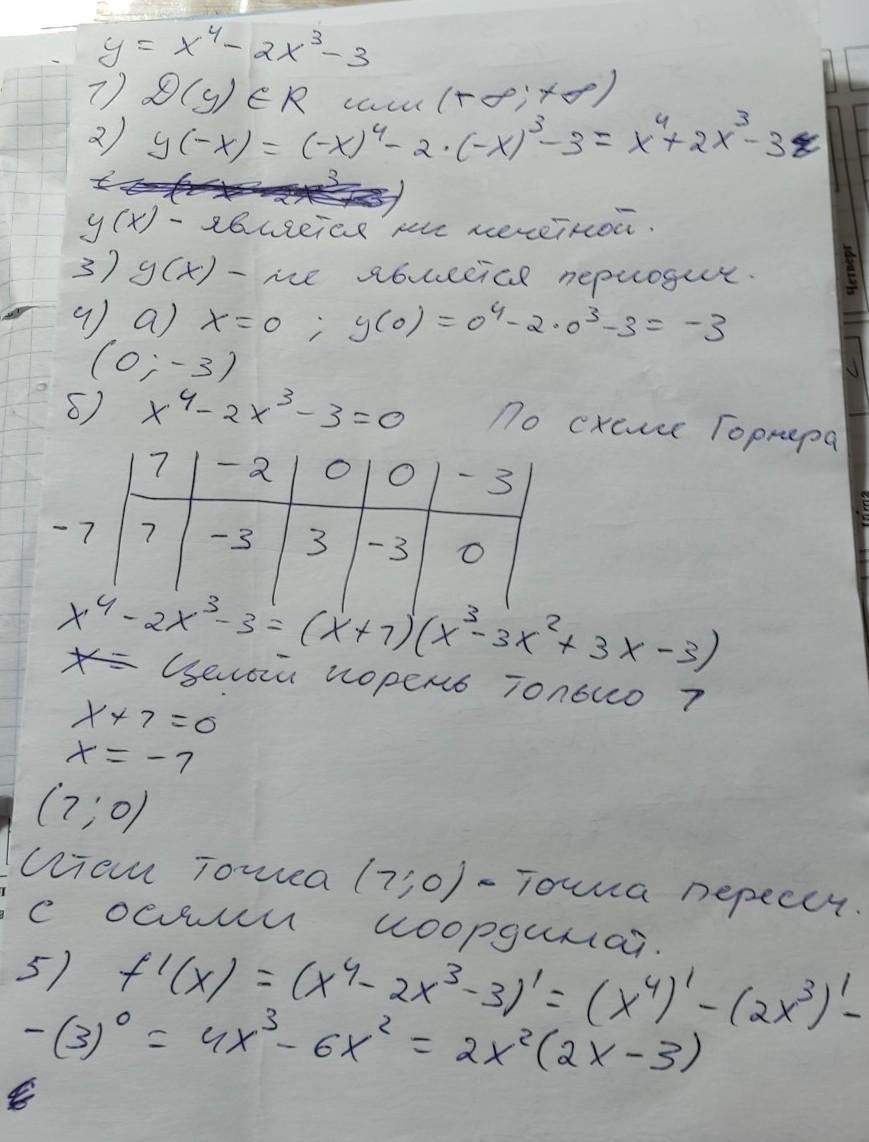 y = x⁴ - 2x³ - 3
1) D(y) ∈ R или (-∞; +∞)
2) y(-x) = (-x)⁴ - 2·(-x)³ - 3 = x⁴ + 2x³ - 3
y(x) - является ни нечётной.
3) y(x) - не является периодич.
4) а) x = 0 ; y(0) = 0⁴ - 2·0³ - 3 = -3
(0; -3)
б) x⁴ - 2x³ - 3 = 0 По схеме Горнера
1 | -2 | 0 | 0 | -3
-1 | 1 | -3 | 3 | -3 | 0
x⁴ - 2x³ - 3 = (x + 1)(x³ - 3x² + 3x - 3)
x = Целый корень только 1
x + 1 = 0
x = -1
(1; 0)
Итак точка (1; 0) - точка пересеч.
с осями координат.
5) f'(x) = (x⁴ - 2x³ - 3)' = (x⁴)' - (2x³)' -
- (3)⁰ = 4x³ - 6x² = 2x²(2x - 3)
Четверг